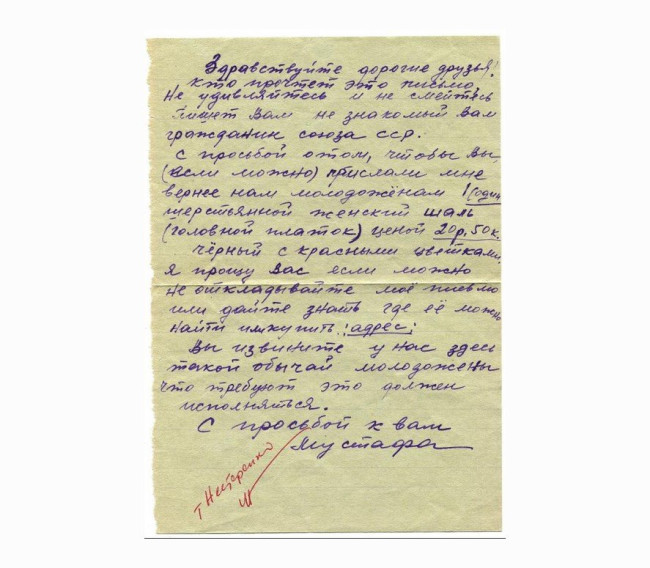 Здравствуйте дорогие друзья!
кто прочтет это письмо
Не удивляйтесь и не смейтясь
Пишет Вам не знакомый вам
гражданин союза сср.
с просьбой отом, чтобы вы,
(если можно) прислали мне
вернее нам молодожёнам 1 (один
шерстьянной женский шаль
(головной платок) ценой 20р.50к.
чёрный с красными цветками,
я прошу вас если можно
не откладывайте моё письмо
или дайте знать где её можно
найти и купить: адрес;
Вы извините у нас здесь
такой обычай молодожены
что требуют это должен
исполняться.
С просьбой к вам
Мустафа
т Нестеренко